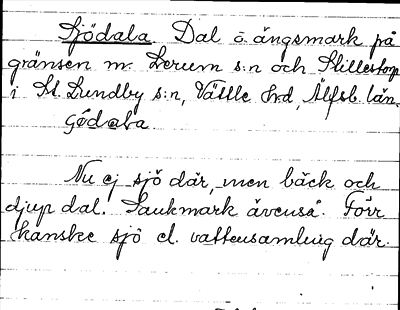 Sjödala. Dal o. ängsmark på
gränsen m. Lerum s:n och Hillestorp
i St. Lundby s:n, Vättle hrd, Älfsb. län.
Gödaba
Nu ej sjö där, men bäck och
djup dal. Sankmark ävenså. Förr
kanske sjö el. vattensamling där.